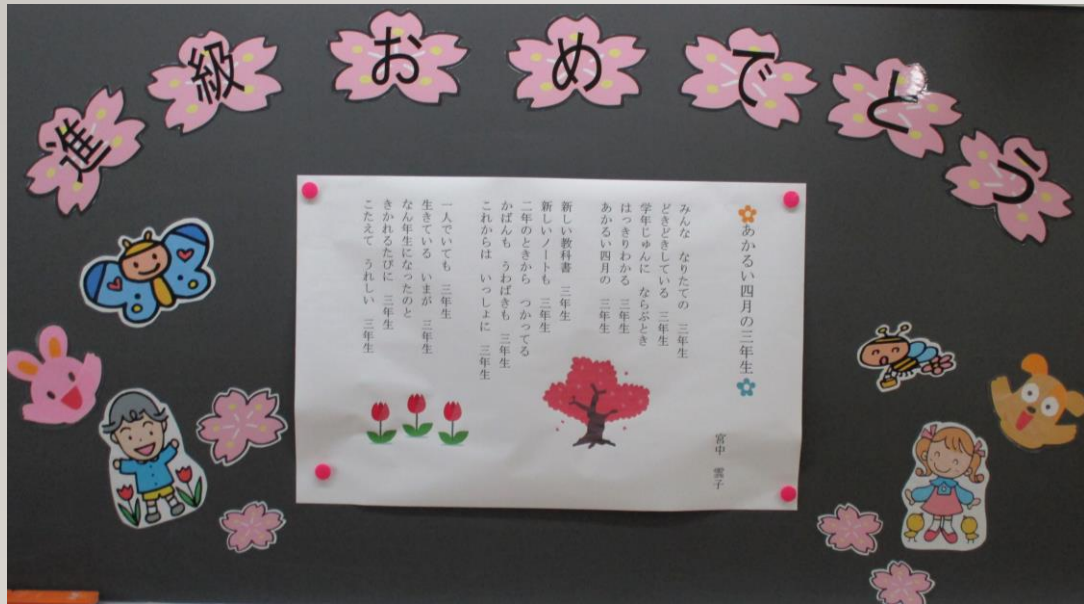 進級おめでとう
あかるい四月の三年生
宮中　雲子
みんな　なりたての　三年生
どきどきしている　三年生
学年じゅんに　ならぶとき
はっきりわかる　三年生
あかるい四月の　三年生
新しい教科書　三年生
新しいノートも　三年生
二年のときから　つかってる
かばんも　うわばきも　三年生
これからは　いっしょに　三年生
一人でいても　三年生
生きている　いまが　三年生
なん年生になったのと
きかれるたびに　三年生
こたえて　うれしい　三年生